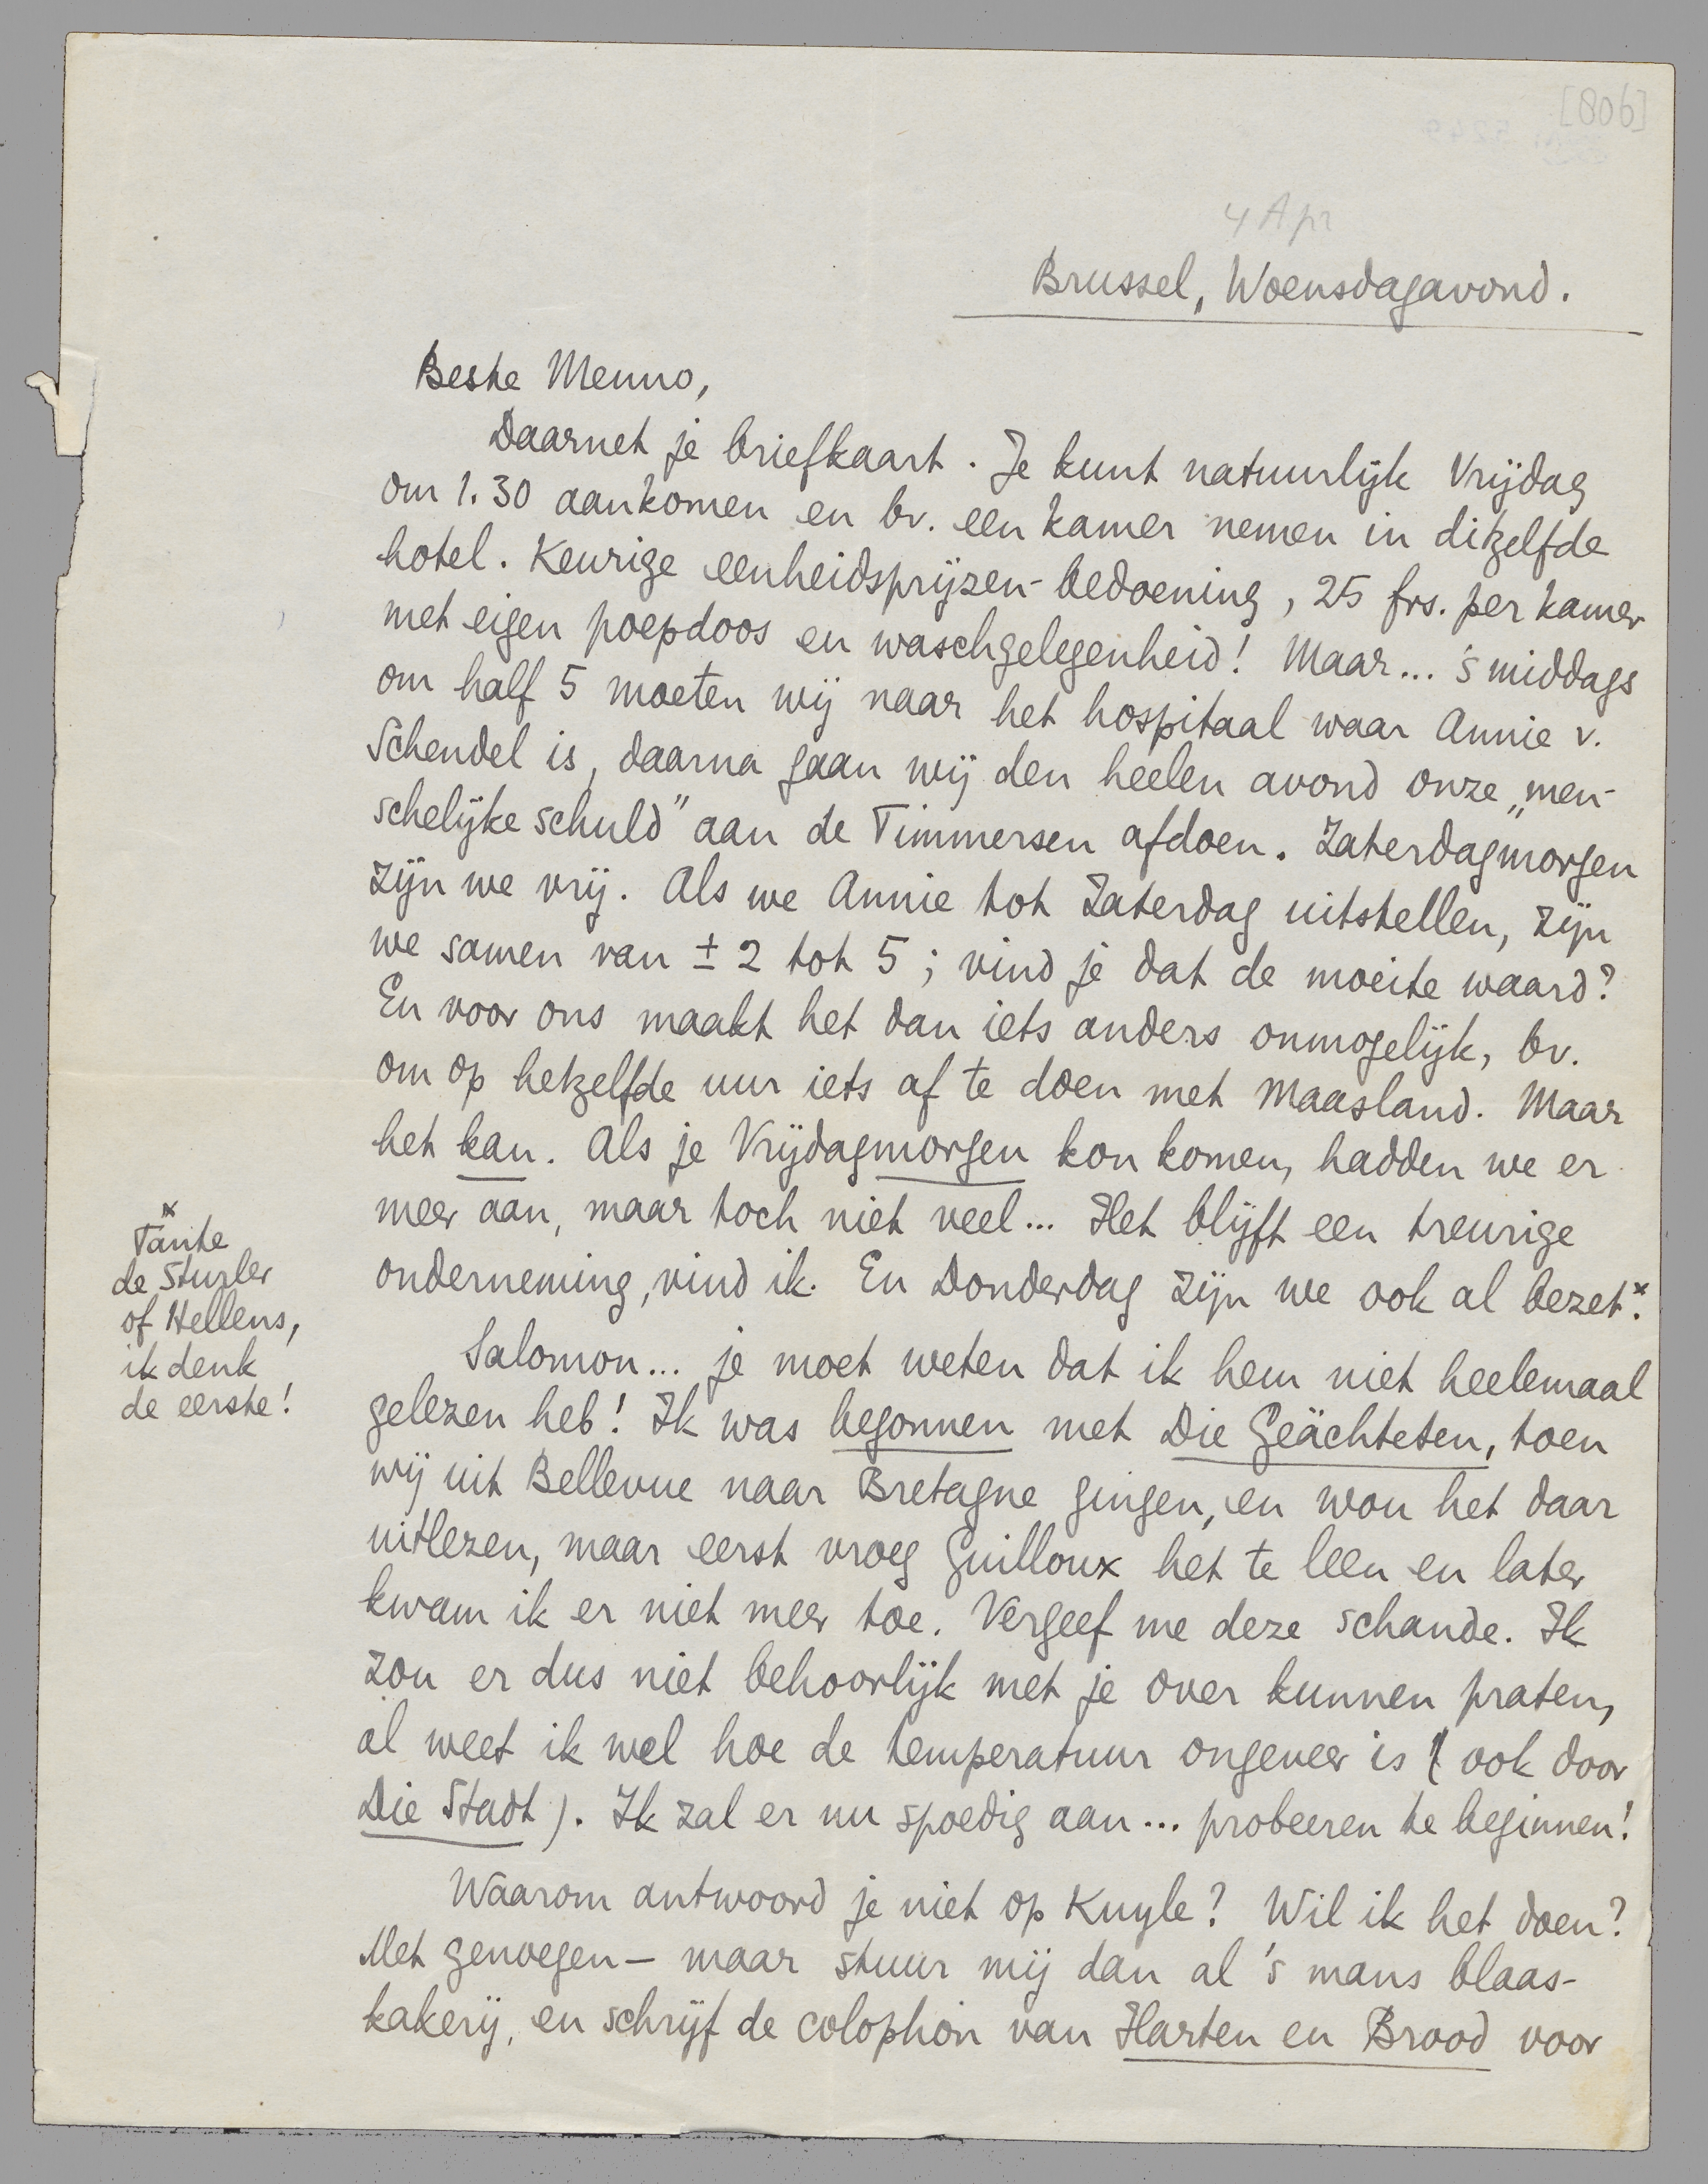 [806]
4 Apr
Brussel, Woensdagavond.
Beste Menno,
Daarnet je briefkaart. Je kunt natuurlijk Vrijdag
om 1.30 aankomen en bv. een kamer nemen in ditzelfde
hotel. Keurige eenheidsprijzen-bedoening, 25 frs. per kamer
met eigen poepdoos en waschgelegenheid! Maar... 's middags
om half 5 moeten wij naar het hospitaal waar Annie v.
Schendel is, daarna gaan wij den heelen avond onze „men-
schelijke schuld” aan de Timmersen afdoen. Zaterdagmorgen
zijn we vrij. Als we Annie tot Zaterdag uitstellen, zijn
we samen van ± 2 tot 5; vind je dat de moeite waard?
En voor ons maakt het dan iets anders onmogelijk, bv.
om op hetzelfde uur iets af te doen met Maasland. Maar
het kan. Als je Vrijdagmorgen kon komen, hadden we er
meer aan, maar toch niet veel... Het blijft een treurige
onderneming, vind ik. En Donderdag zijn we ook al bezet.*
* Tante
de Sturler
of Hellens,
ik denk
de eerste!
Salomon... je moet weten dat ik hem niet heelemaal
gelezen heb! Ik was begonnen met Die Geächteten, toen
wij uit Bellevue naar Bretagne gingen, en wou het daar
uitlezen, maar eerst vroeg Guilloux het te leen en later
kwam ik er niet meer toe. Vergeef me deze schande. Ik
zou er dus niet behoorlijk met je over kunnen praten,
al weet ik wel hoe de temperatuur ongeveer is (ook door
Die Stadt). Ik zal er nu spoedig aan... probeeren te beginnen!
Waarom antwoord je niet op Kuyle? Wil ik het doen?
Met genoegen – maar stuur mij dan al 's mans blaas-
kakerij, en schrijf de colophon van Harten en Brood voor